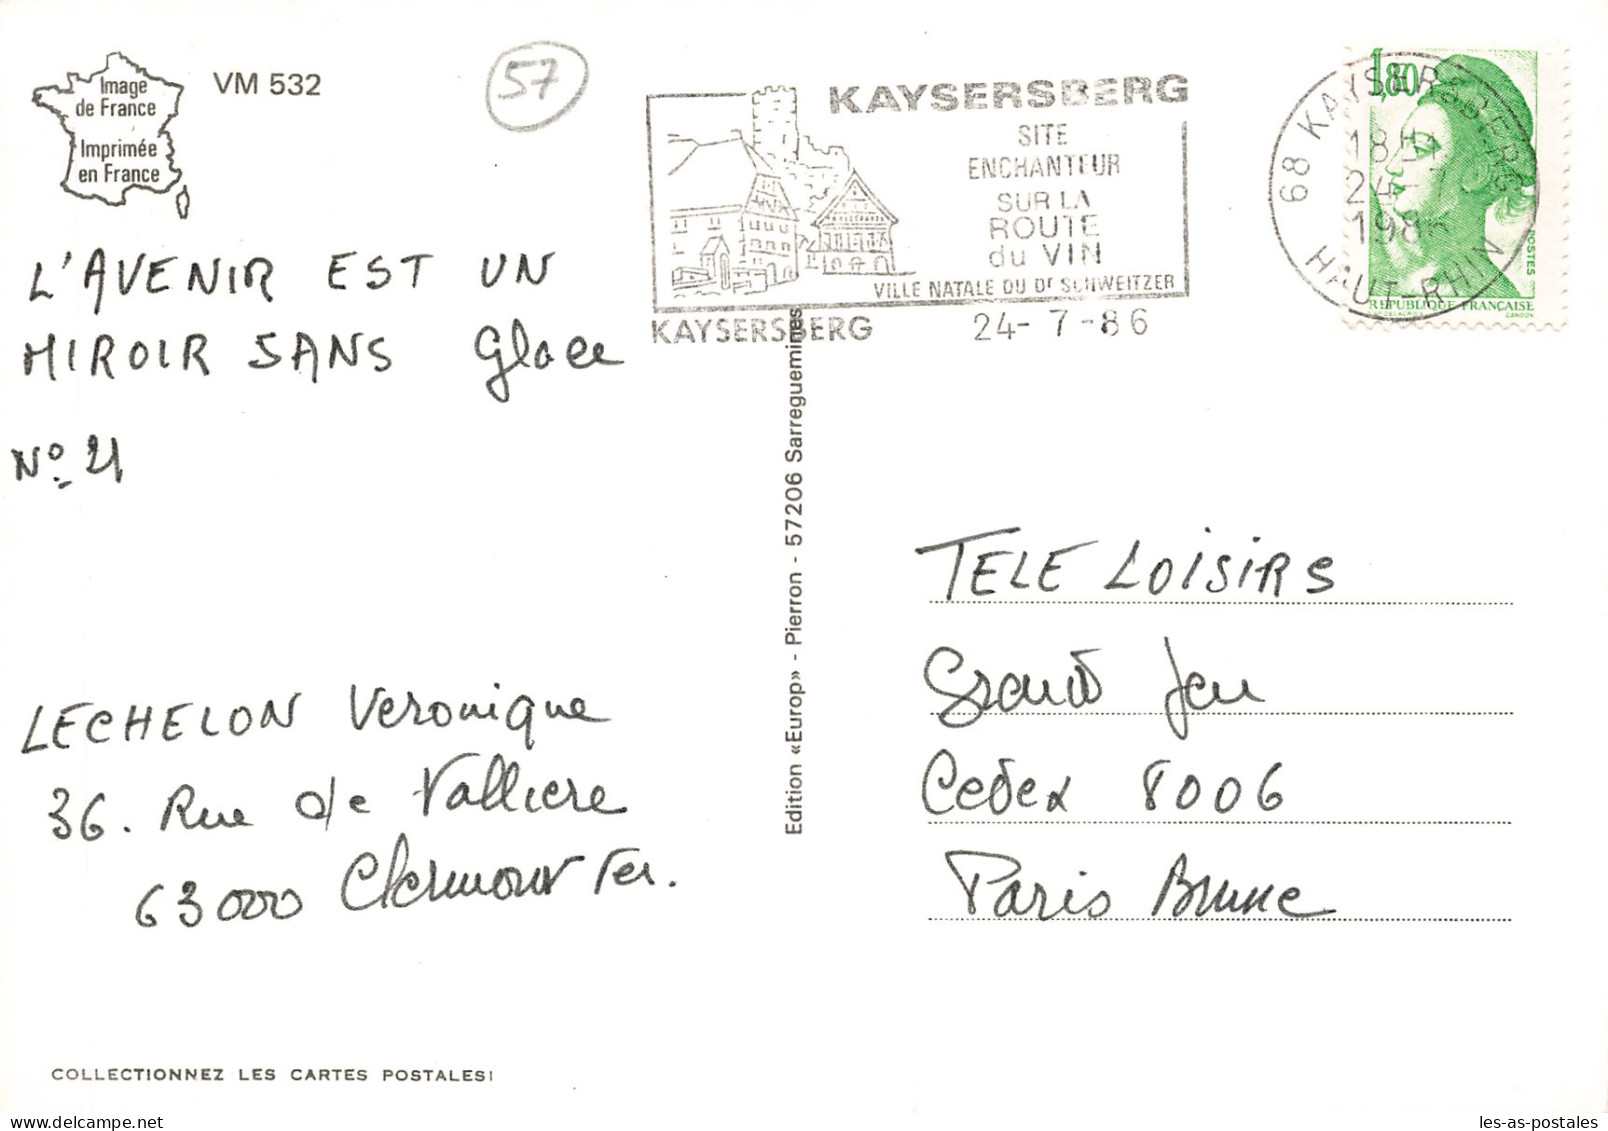 Image
de France
Imprimée
en France
VM 532
57
KAYSERSBERG
SITE
ENCHANTEUR
SUR LA
ROUTE
du VIN
VILLE NATALE DU Dr SCHWEITZER
KAYSERSBERG
24-7-86
68 KAYSERSBERG
18H
24-7
1986
HAUT-RHIN
1,80
POSTES
REPUBLIQUE FRANÇAISE
GANDON
L'AVENIR EST UN
MIROIR SANS Glace
No 21
LECHELON Veronique
36. Rue de Valliere
63000 Clermont Fer.
Edition «Europ» - Pierron - 57206 Sarreguemines
TELE LOISIRS
Grand Jeu
Cedex 8006
Paris Brune
COLLECTIONNEZ LES CARTES POSTALES!
les-as-postales